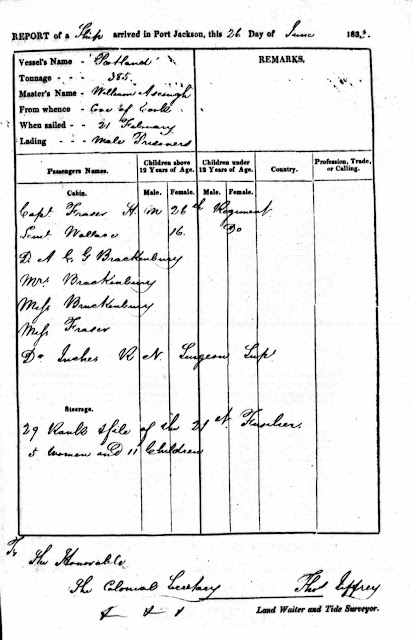 REPORT of a Ship arrived in Port Jackson, this 26 Day of June 183
Vessel's Name - Portland
Tonnage - - - 385.
Master's Name - William Ascough
From whence - Cove of Cork
When sailed - - 21 February
Lading - - - Male Prisoners
REMARKS.
Passengers Names.
Children above 12 Years of Age.
Children under 12 Years of Age.
Country.
Profession, Trade, or Calling.
Cabin.
Male. Female. Male. Female.
Capt. Fraser H. M 26th Regiment
Lieut Wallace 16. Do
D. A. C. G Brackenbury
Mrs. Brackenbury
Miss Brackenbury
Miss Fraser
Dr Inches R N. Surgeon Sup
Steerage.
29 Rank & file of the 21st N. Fusilier.
5 women and 11 Children
To
The Honorable
The Colonial Secretary
Thos Jeffrey
Land Waiter and Tide Surveyor.